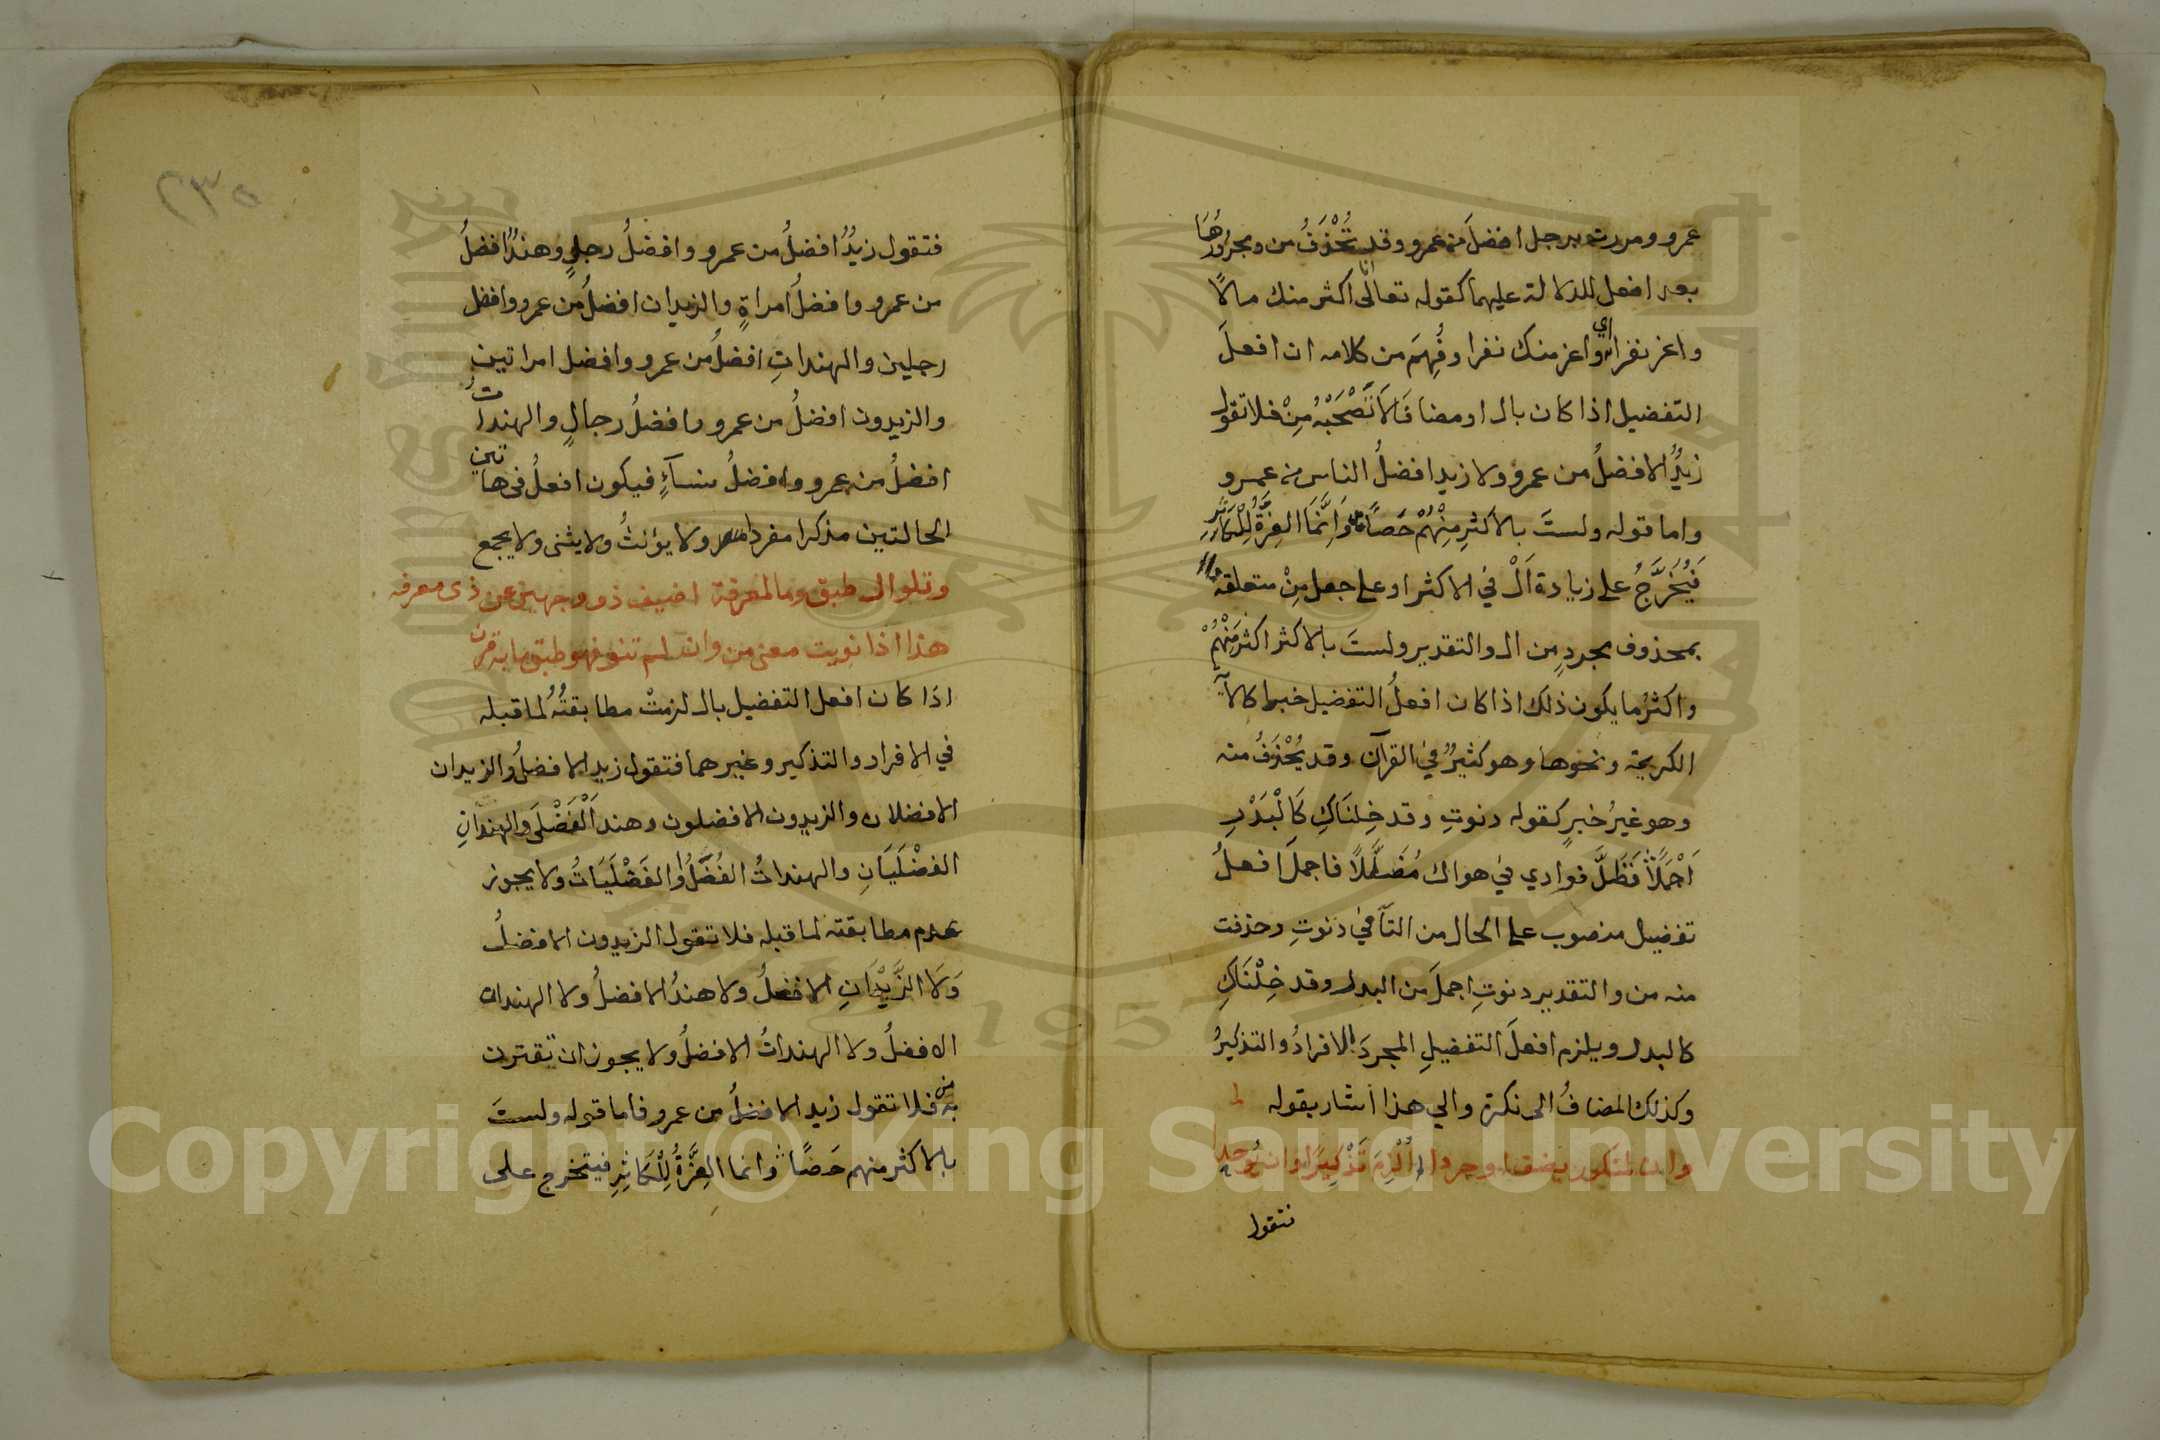 عمرو ومررت برجل افضلَ من عمرو وقد تُحْذَفُ من ومجرورُهَا
بعد افعل للدلالة عليهما كقوله تعالى انا اكثر منك مالًا
واعز نفرا اي واعز منك نفرا وفُهِمَ من كلامه ان افعلَ
التفضيل اذا كان بال او مضافا لَا تَصْحَبْهُ مِنْ فلا تقول
زيدٌ الافضلُ من عمرو ولا زيد افضلُ الناس من عمرو
واما قوله ولستَ بالاكثرِ مِنْهُمْ حَصًا وَاِنَّمَا العِزَّةُ لِلْكَاثِرِ
فَيُخَرَّجُ على زيادة اَلْ في الاكثر او على جعل مِنْ متعلقة
بمحذوف مجردٍ من ال والتقدير ولستَ بالاكثر اكثرَ مِنْهُمْ
واكثرُ ما يكون ذلك اذا كان افعلُ التفضيل خبرا كالآية
الكريمة ونحوها وهو كثيرٌ في القرآن وقد يُحْذَفُ منه
وهو غيرُ خبرٍ كقوله دنوتِ وقد خِلنَاكِ كَالْبَدْرِ
اَجْمَلَا فَظَلَّ فوادي في هواك مُضَلَّلًا فاجملَ افعلُ
تفضيل منصوب على الحال من التآ في دنوتِ وحذفت
منه من والتقدير دنوتِ اجملَ من البدر وقد خِلْنَاكِ
كالبدر ويلزم افعلَ التفضيلِ المجردَ الافرادُ والتذكيرُ
وكذلك المضافُ الى نكرة والي هذا اشار بقوله
وان لمنكور يضف او جردا اُلْزِمَ تَذْكِيرًا وان يُوحدا
فتقول
٢٣٥
فتقول زيدٌ افضلُ من عمرو وافضلُ رجلٍ وهندٌ افضلُ
من عمرو وافضلُ امراةٍ والزيدان افضلُ من عمرو وافضل
رجلين والهنداتِ افضلُ من عمرو وافضل امراتين
والزيدون افضلُ من عمرو وافضلُ رجالٍ والهنداتُ
افضلُ من عمرو وافضلُ نسآءٍ فيكون افعلُ في هاتين
الحالتين مذكرا مفردا ولا يؤنثُ ولا يثنى ولا يجمع
وتلو ال طبق وما لمعرفة اضيف ذو وجهين عن ذى معرفه
هذا اذا نويت معنى من وان لم تنو فهو طبق ما به قرن
اذا كان افعل التفضيل بال لزمتْ مطابقتُهُ لما قبله
في الافراد والتذكير وغيرهما فتقول زيد الافضلُ والزيدان
الافضلان والزيدون الافضلون وهند اَلْفَضْلَى والهندانِ
الفضْلَيَانِ والهنداتُ الفُضَّلُ والفَضْلَيَاتُ ولا يجوز
عدم مطابقته لما قبله فلا تقول الزيدون الافضلُ
وَلَا الزَّيْدَانِ الافضلُ ولا هندُ الافضلُ ولا الهندان
الافضلُ ولا الهنداتُ الافضلُ ولا يجوز ان تقترن
به من فلا تقول زيد الافضلُ من عمرو فاما قوله ولستَ
بالاكثر منهم حَصًا وانما العِزَّةُ لِلْكَاثِرِ فيتخرج على
Copyright © King Saud University
1957